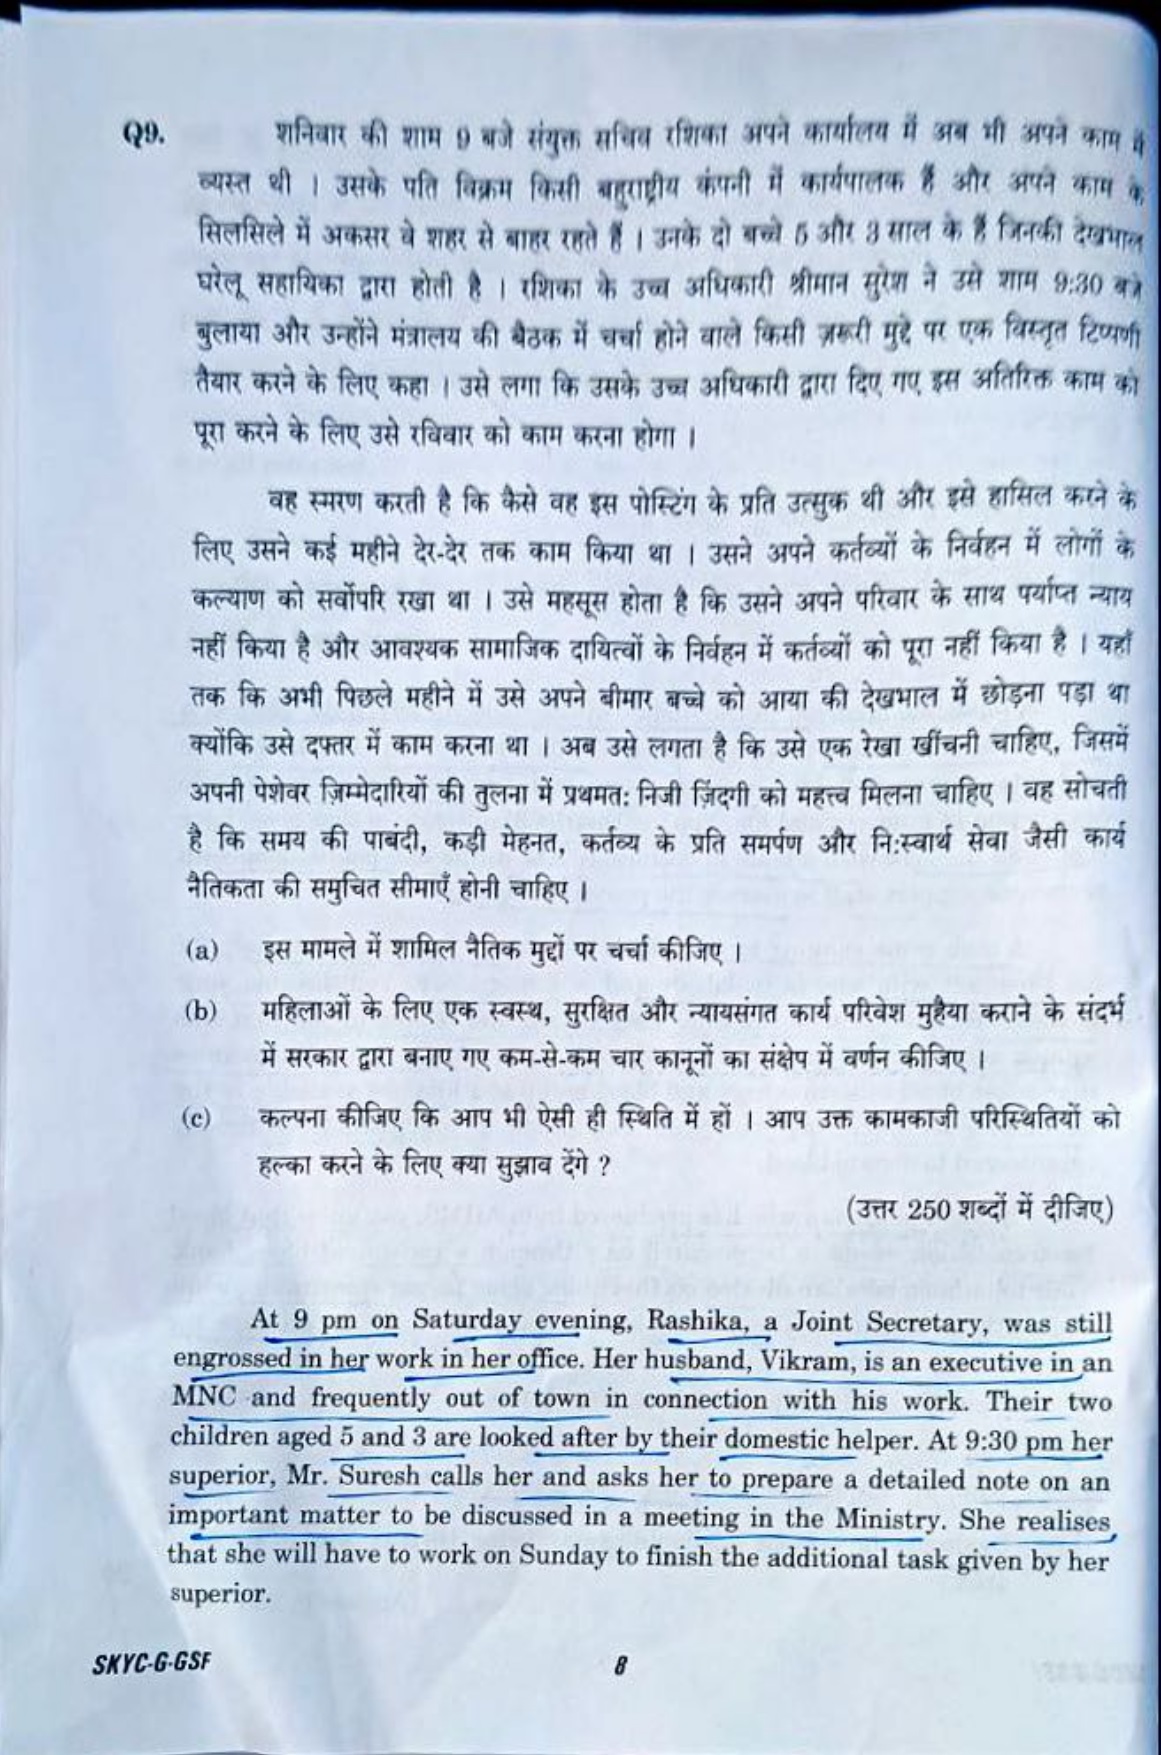 Q9. शनिवार की शाम 9 बजे संयुक्त सचिव रशिका अपने कार्यालय में अब भी अपने काम में
व्यस्त थी । उसके पति विक्रम किसी बहुराष्ट्रीय कंपनी में कार्यपालक हैं और अपने काम के
सिलसिले में अकसर वे शहर से बाहर रहते हैं । उनके दो बच्चे 5 और 3 साल के हैं जिनकी देखभाल
घरेलू सहायिका द्वारा होती है । रशिका के उच्च अधिकारी श्रीमान सुरेश ने उसे शाम 9:30 बजे
बुलाया और उन्होंने मंत्रालय की बैठक में चर्चा होने वाले किसी ज़रूरी मुद्दे पर एक विस्तृत टिप्पणी
तैयार करने के लिए कहा । उसे लगा कि उसके उच्च अधिकारी द्वारा दिए गए इस अतिरिक्त काम को
पूरा करने के लिए उसे रविवार को काम करना होगा ।
वह स्मरण करती है कि कैसे वह इस पोस्टिंग के प्रति उत्सुक थी और इसे हासिल करने के
लिए उसने कई महीने देर-देर तक काम किया था । उसने अपने कर्तव्यों के निर्वहन में लोगों के
कल्याण को सर्वोपरि रखा था । उसे महसूस होता है कि उसने अपने परिवार के साथ पर्याप्त न्याय
नहीं किया है और आवश्यक सामाजिक दायित्वों के निर्वहन में कर्तव्यों को पूरा नहीं किया है । यहाँ
तक कि अभी पिछले महीने में उसे अपने बीमार बच्चे को आया की देखभाल में छोड़ना पड़ा था
क्योंकि उसे दफ्तर में काम करना था । अब उसे लगता है कि उसे एक रेखा खींचनी चाहिए, जिसमें
अपनी पेशेवर ज़िम्मेदारियों की तुलना में प्रथमत: निजी ज़िंदगी को महत्त्व मिलना चाहिए । वह सोचती
है कि समय की पाबंदी, कड़ी मेहनत, कर्तव्य के प्रति समर्पण और नि:स्वार्थ सेवा जैसी कार्य
नैतिकता की समुचित सीमाएँ होनी चाहिए ।
(a) इस मामले में शामिल नैतिक मुद्दों पर चर्चा कीजिए ।
(b) महिलाओं के लिए एक स्वस्थ, सुरक्षित और न्यायसंगत कार्य परिवेश मुहैया कराने के संदर्भ
में सरकार द्वारा बनाए गए कम-से-कम चार कानूनों का संक्षेप में वर्णन कीजिए ।
(c) कल्पना कीजिए कि आप भी ऐसी ही स्थिति में हों । आप उक्त कामकाजी परिस्थितियों को
हल्का करने के लिए क्या सुझाव देंगे ?
(उत्तर 250 शब्दों में दीजिए)
At 9 pm on Saturday evening, Rashika, a Joint Secretary, was still
engrossed in her work in her office. Her husband, Vikram, is an executive in an
MNC and frequently out of town in connection with his work. Their two
children aged 5 and 3 are looked after by their domestic helper. At 9:30 pm her
superior, Mr. Suresh calls her and asks her to prepare a detailed note on an
important matter to be discussed in a meeting in the Ministry. She realises
that she will have to work on Sunday to finish the additional task given by her
superior.
SKYC-G-GSF 8